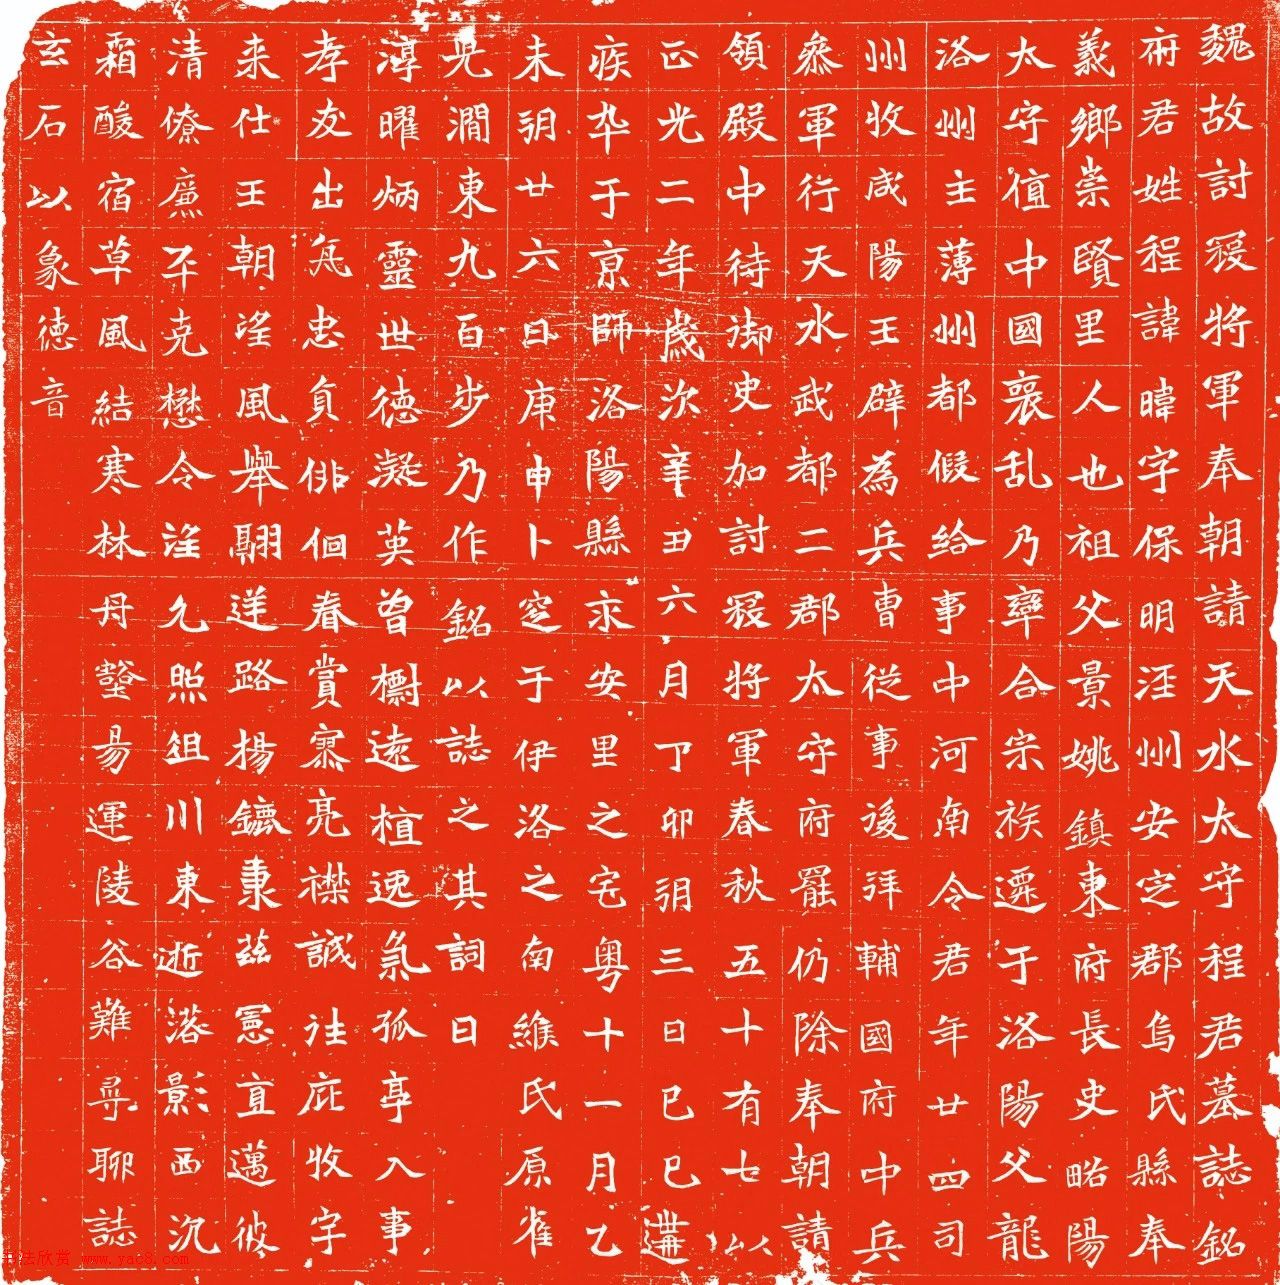 魏故討寇將軍奉朝請天水太守程君墓誌銘
府君姓程諱暐字保明涇州安定郡烏氏縣奉
義鄉崇賢里人也祖父景姚鎮東府長史略陽
太守值中國衰乱乃率合宗族遷于洛陽父龍
洛州主薄州都假給事中河南令君年廿四司
州牧咸陽王辟為兵曹從事後拜輔國府中兵
叅軍行天水武都二郡太守府罷仍除奉朝請
領殿中侍御史加討寇將軍春秋五十有七以
正光二年歲次辛丑六月丁卯朔三日己巳遘
疾卒于京師洛陽縣永安里之宅粤十一月乙
未朔廿六日庚申卜窆于伊洛之南維氏原雀
兒澗東九百步乃作銘以誌之其詞曰
淳曜炳靈世德凝英曾樹遠植逸氣孤亭入事
孝友出死忠貞俳佪春賞寥亮襟誠往庇牧字
来仕王朝望風舉翮送路楊鑣秉兹憲直邁彼
清僚廉平克懋令望允照徂川東逝落影西沉
霜酸宿草風結寒林舟壑易運陵谷難尋聊誌
玄石以象德音
书法欣赏 www.yac8.com